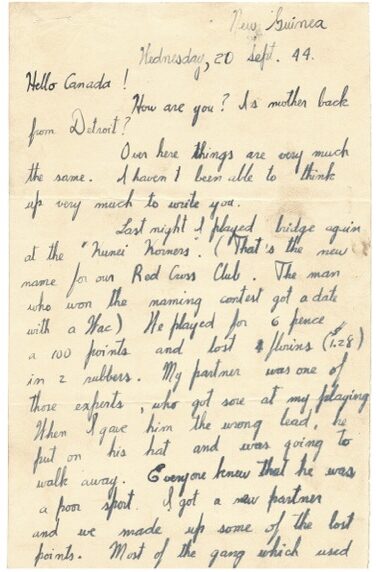 New Guinea
Wednesday, 20 Sept. 44.
Hello Canada!
How are you? Is mother back
from Detroit?
Over here things are very much
the same. I haven't been able to think
up very much to write you.
Last night I played bridge again
at the "Kunei Korners". (That's the new
name for our Red Cross Club. The man
who won the naming contest got a date
with a Wac) We played for 6 pence
a 100 points and lost 4 florins ($1.28)
in 2 rubbers. My partner was one of
those experts, who got sore at my playing
When I gave him the wrong lead, he
put on his hat and was going to
walk away. Everyone knew that he was
a poor sport. I got a new partner
and we made up some of the lost
points. Most of the gang which used